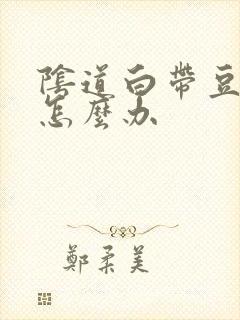 陰道白帶豆
怎麼办
鄭柔美